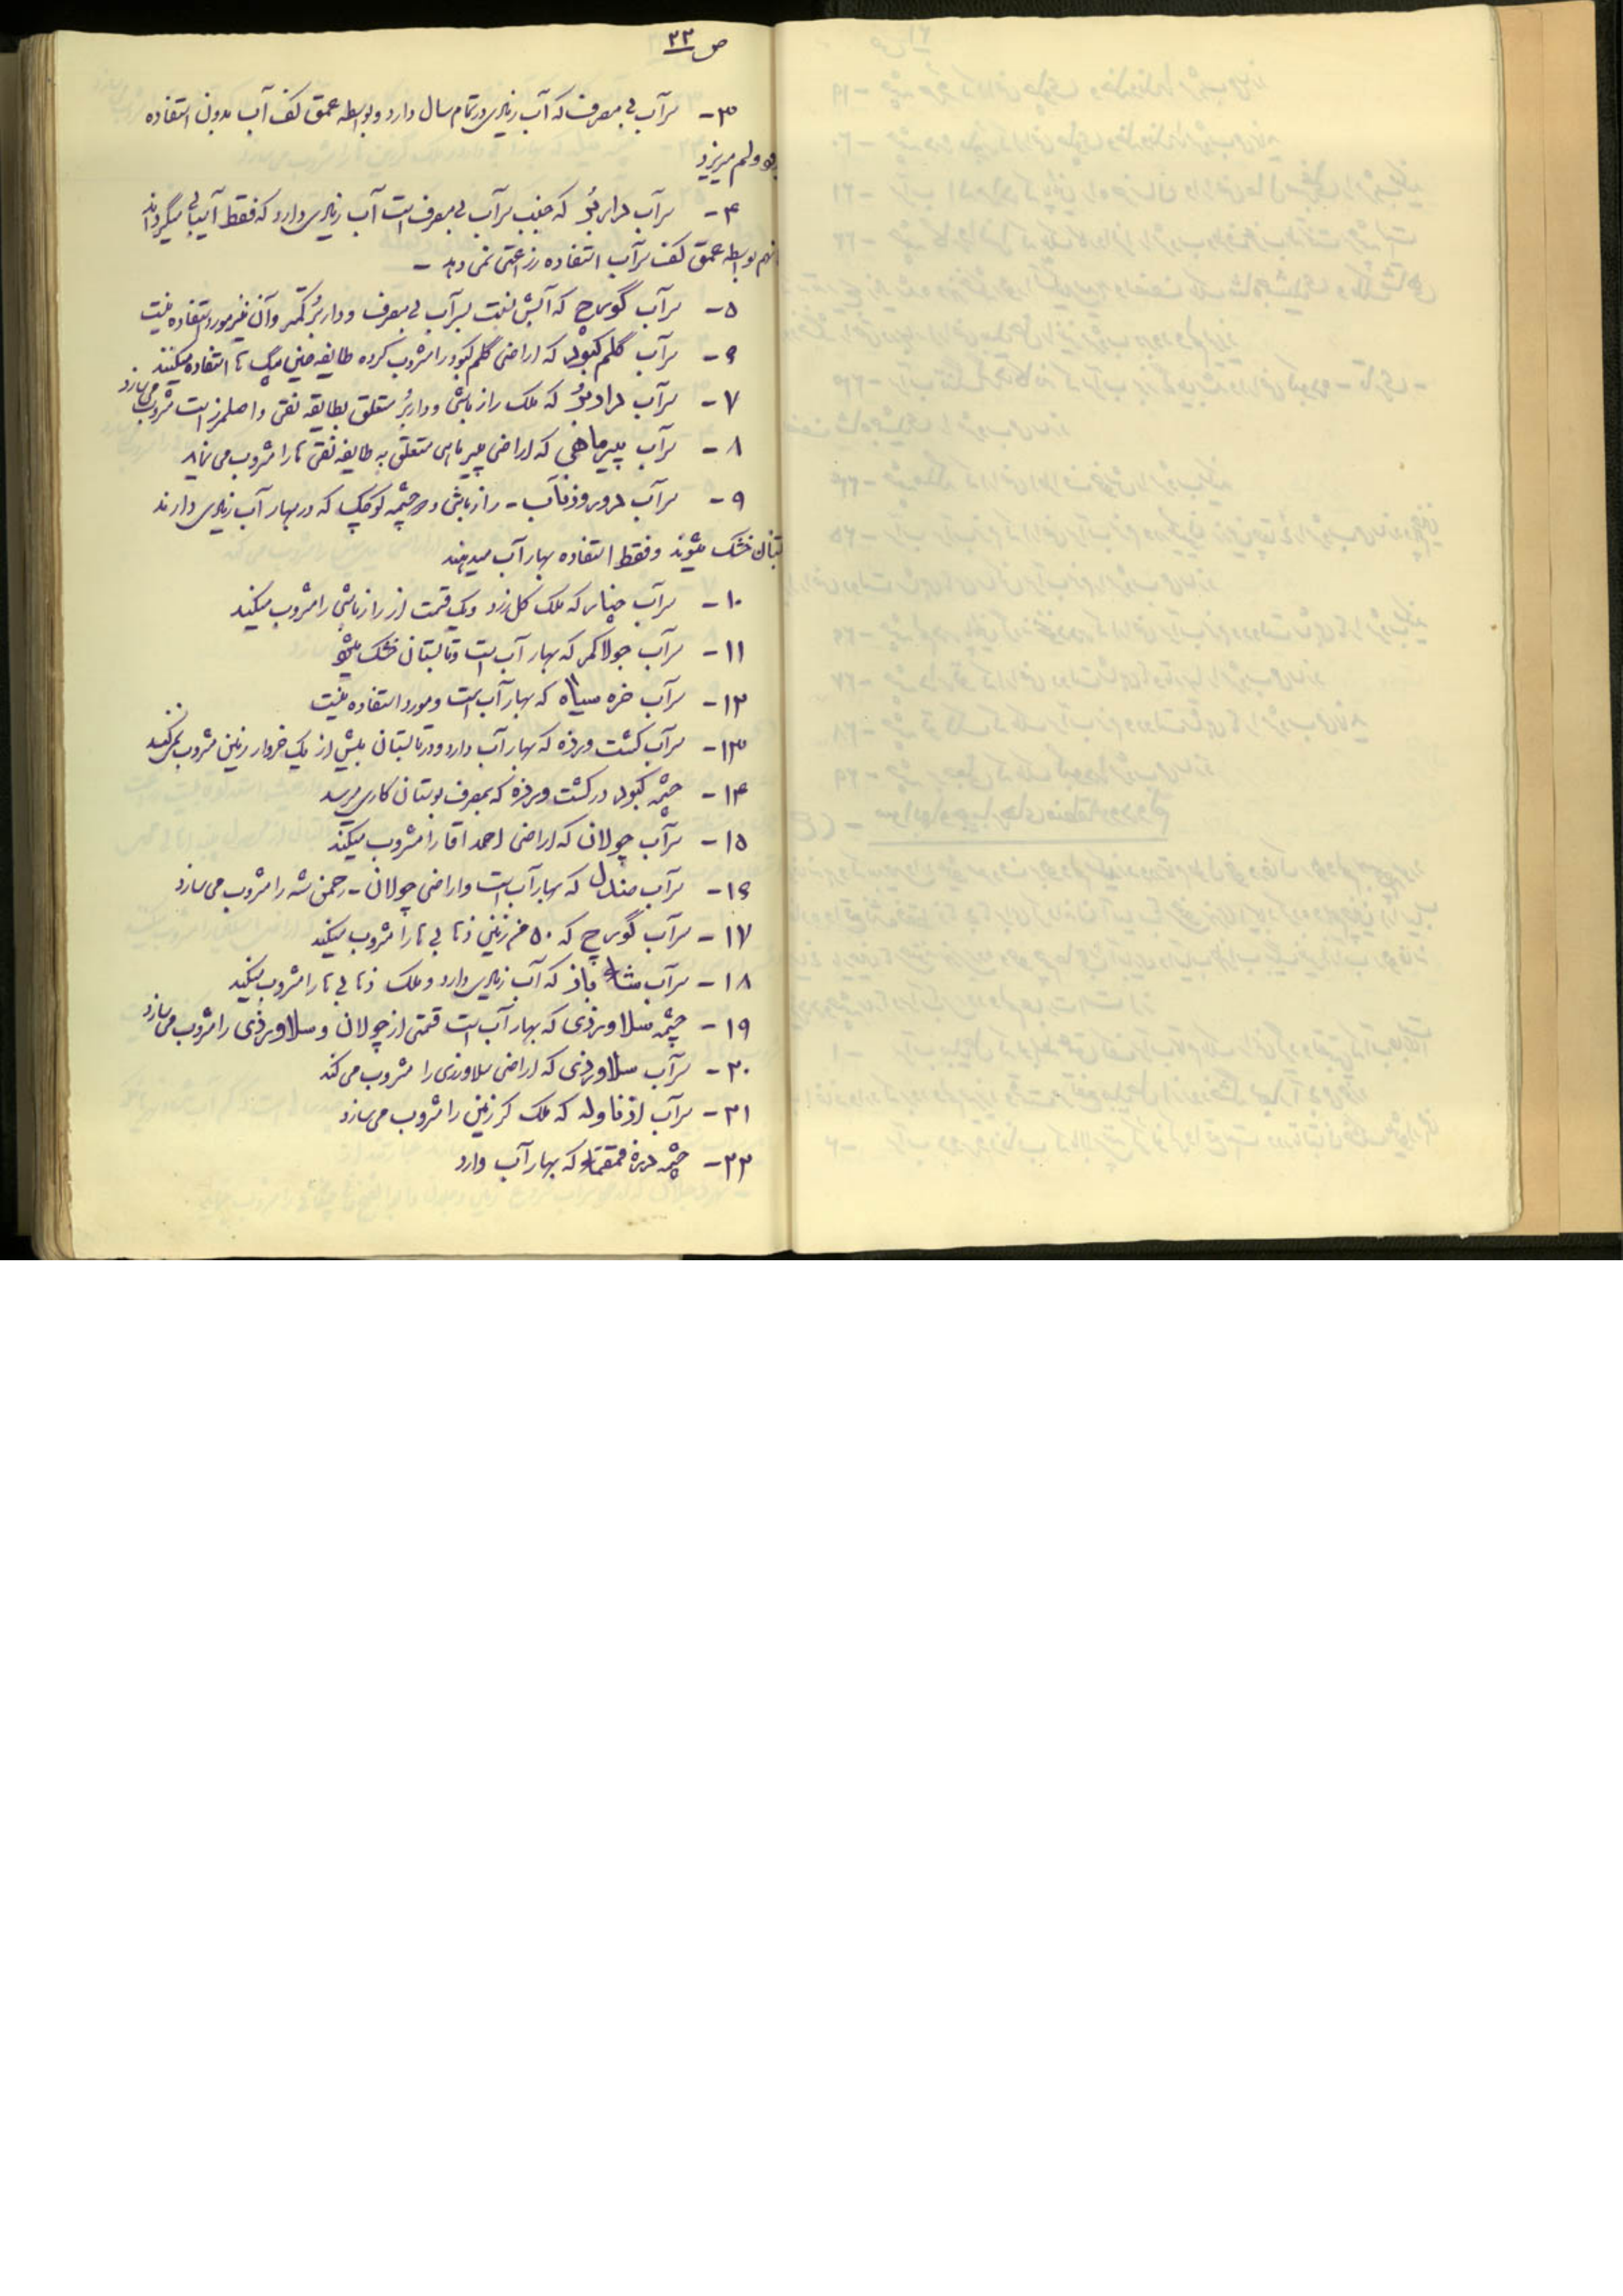 ص ۲۲
۳- سرآب بی مصرف که آب زیادی در تمام سال دارد و بواسطه عمق کف آب بدون استفاده
ولم میریزد
۴- سرآب که جنب سرآب بی مصرف است آب زیادی دارد که فقط آسیابی میگرداند
بواسطه عمق کف سرآب استفاده زراعتی نمی دهد -
۵- سرآب گورچ که آبش نسبت بسرآب بی مصرف و کمتر و آن نیز مورد استفاده نیست
۶- سرآب گلم کبود که اراضی گلم کبود را مشروب کرده طایفه استفاده میکنند
۷- سرآب که ملک رازباشی و متعلق بطایفه نقی و اصلمرز است مشروب می سازد
۸- سرآب پیرماهی که اراضی متعلق به طایفه نقی ها را مشروب می نماید
۹- سرآب - رازباشی دو چشمه کوچک که در بهار آب زیادی دارند
خشک میشوند و فقط استفاده بهار آب میدهند
۱۰- سرآب چنار که ملک گل زرد و یک قسمت از رازباشی را مشروب میکند
۱۱- سرآب جولاکمر که بهار آب است و تابستان خشک میشود
۱۲- سرآب خره سیاه که بهار آب است و مورد استفاده نیست
۱۳- سرآب کشت ورزه که بهار آب دارد و در تابستان بیش از یک خروار زمین مشروب نمیکند
۱۴- چشمه کبود در کشت ورزه که بمصرف بوستان کاری میرسد
۱۵- سرآب چولان که اراضی احمد آقا را مشروب میکند
۱۶- سرآب صندل که بهار آب است و اراضی چولان - رحمن شه را مشروب می سازد
۱۷- سرآب گورچ که ۵۰ من زمین ذنابی ها را مشروب میکند
۱۸- سرآب شاه باز که آب زیادی دارد و ملک ذنابی ها را مشروب میکند
۱۹- چشمه سلاورزی که بهار آب است قسمتی از چولان و سلاورزی را مشروب می سازد
۲۰- سرآب سلاورزی که اراضی سلاورزی را مشروب می کند
۲۱- سرآب ازناوله که ملک کرزین را مشروب می سازد
۲۲- چشمه دره که بهار آب دارد